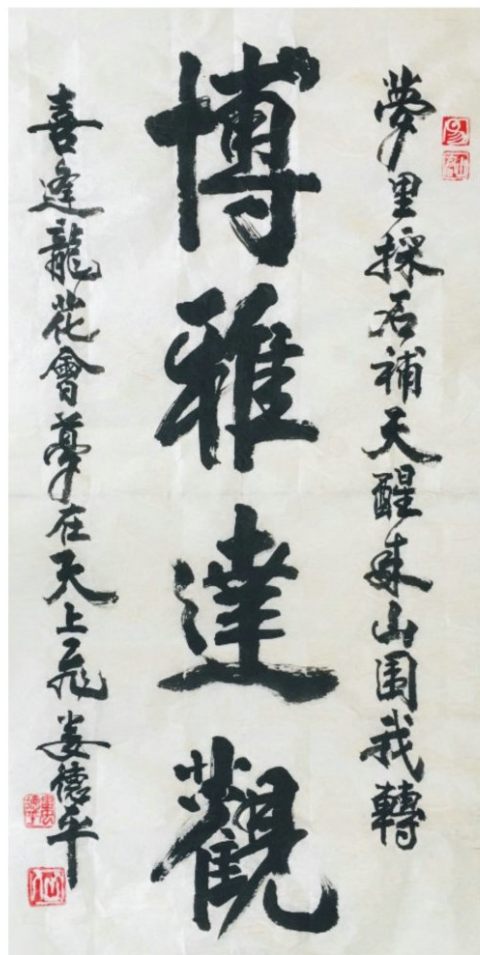 夢里採石補天醒来山围我轉
博雅達觀
喜逢龍花會夢在天上飛姜德平